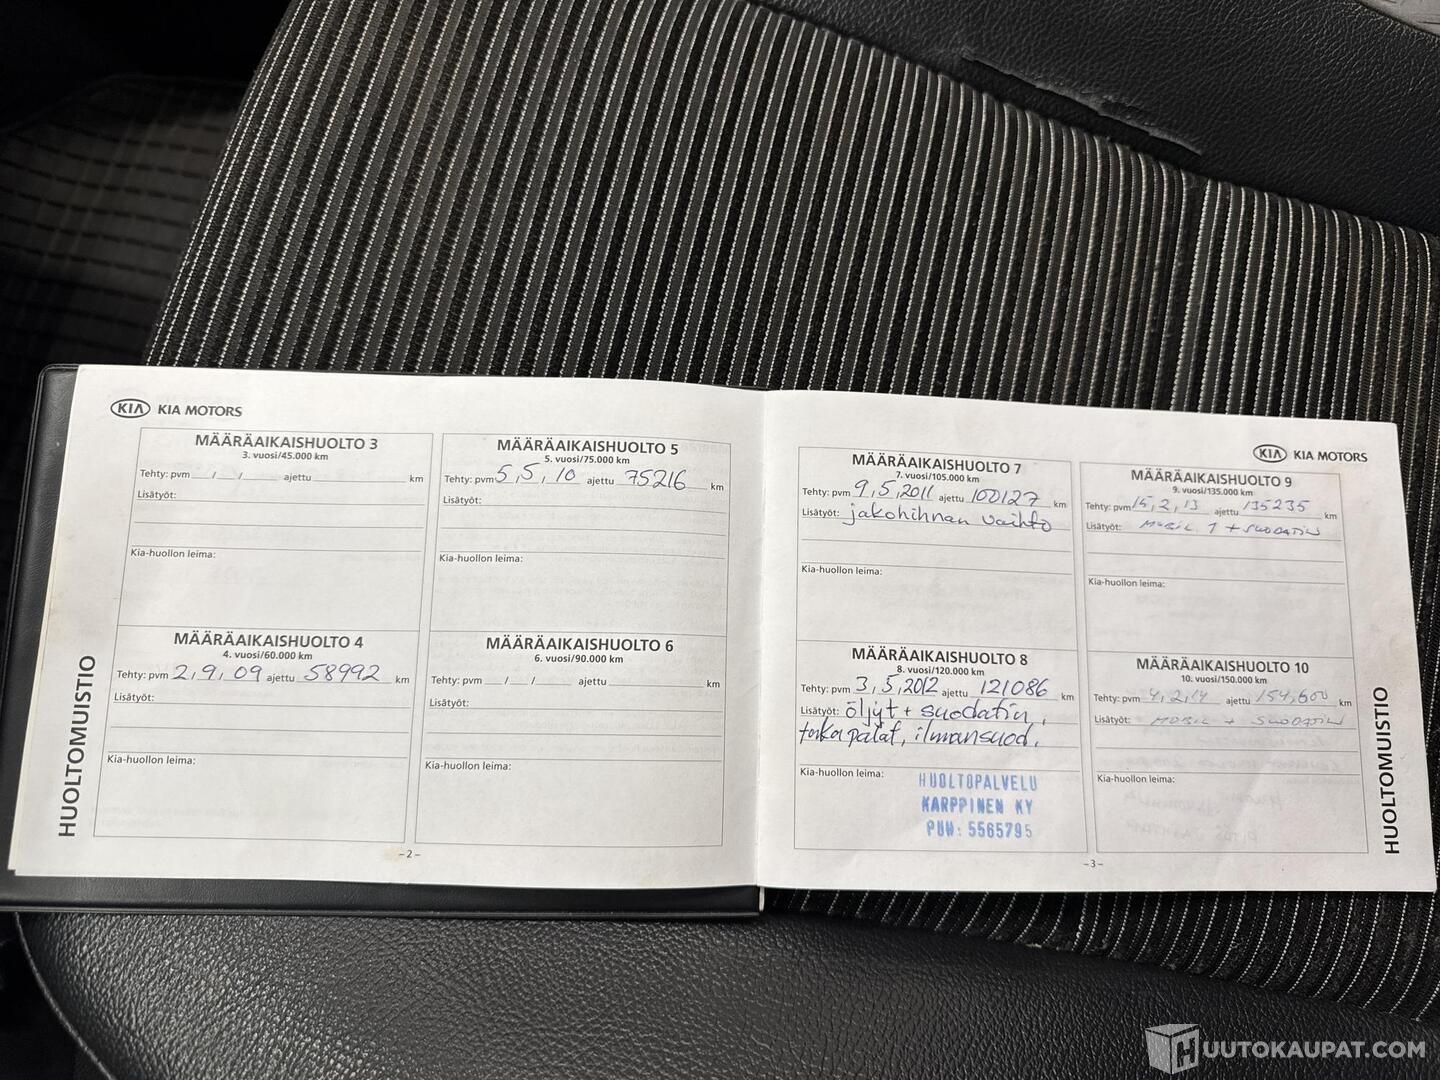 KIA KIA MOTORS
MÄÄRÄAIKAISHUOLTO 3
3. vuosi/45.000 km
Tehty: pvm / / ajettu km
Lisätyöt:
Kia-huollon leima:
MÄÄRÄAIKAISHUOLTO 4
4. vuosi/60.000 km
Tehty: pvm 2,9,09 ajettu 58992 km
Lisätyöt:
Kia-huollon leima:
HUOLTOMUISTIO
MÄÄRÄAIKAISHUOLTO 5
5. vuosi/75.000 km
Tehty: pvm 5,5,10 ajettu 75216 km
Lisätyöt:
Kia-huollon leima:
MÄÄRÄAIKAISHUOLTO 6
6. vuosi/90.000 km
Tehty: pvm / / ajettu km
Lisätyöt:
Kia-huollon leima:
–2–
MÄÄRÄAIKAISHUOLTO 7
7. vuosi/105.000 km
Tehty: pvm 9,5,2011 ajettu 100127 km
Lisätyöt: jakohihnan vaihto
Kia-huollon leima:
MÄÄRÄAIKAISHUOLTO 8
8. vuosi/120.000 km
Tehty: pvm 3,5,2012 ajettu 121086 km
Lisätyöt: öljyt + suodatin,
taka palat, ilmansuod.
Kia-huollon leima:
HUOLTOPALVELU
KARPPINEN KY
PUH: 5565795
KIA KIA MOTORS
MÄÄRÄAIKAISHUOLTO 9
9. vuosi/135.000 km
Tehty: pvm 15,2,13 ajettu 135235 km
Lisätyöt: MOBIL 1 + SUODATIN
Kia-huollon leima:
MÄÄRÄAIKAISHUOLTO 10
10. vuosi/150.000 km
Tehty: pvm 4,2,14 ajettu 154,600 km
Lisätyöt: MOBIL + SUODATIN
Kia-huollon leima:
HUOLTOMUISTIO
–3–
HUUTOKAUPAT.COM